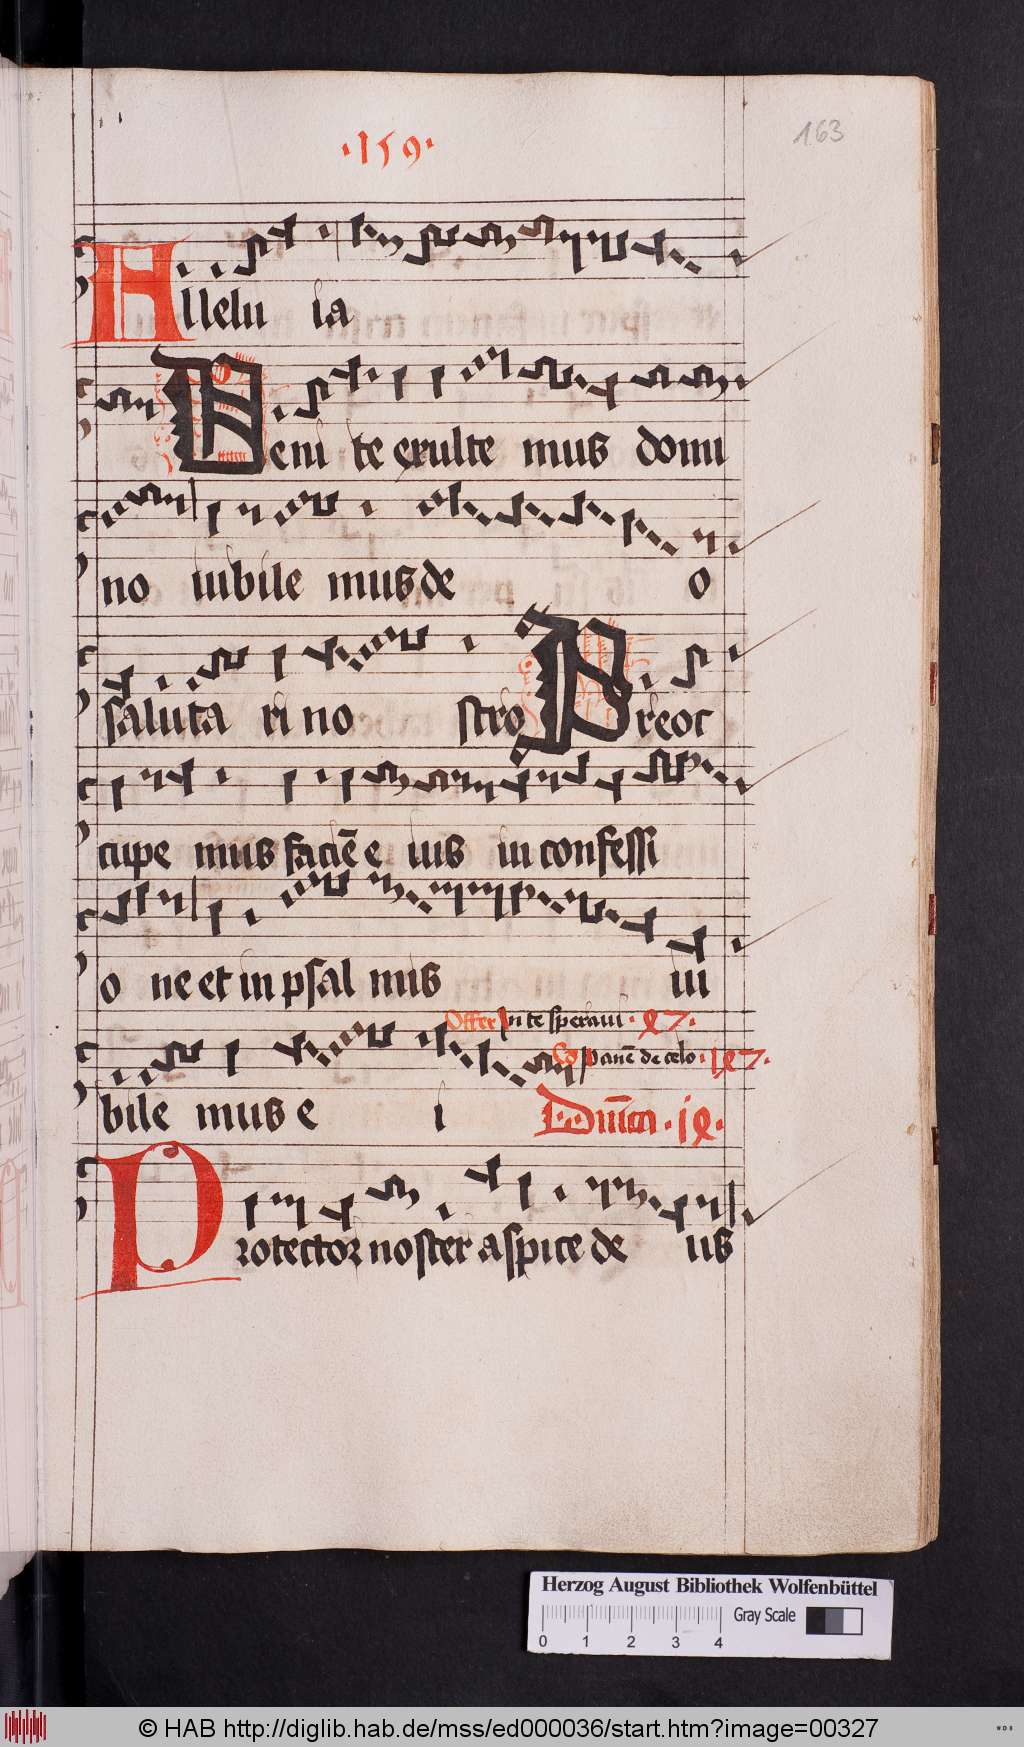 ·159·
163
Allelu ia
Veni te exulte mus domi
no iubile mus de o
saluta ri no stro Preoc
cupe mus faciē e ius in confessi
o ne et in psal mis iu
Offer In te speraui ·
Co Panē de celo ·
bile mus e i
Protector noster aspice de us
Herzog August Bibliothek Wolfenbüttel
Gray Scale
0 1 2 3 4
© HAB http://diglib.hab.de/mss/ed000036/start.htm?image=00327